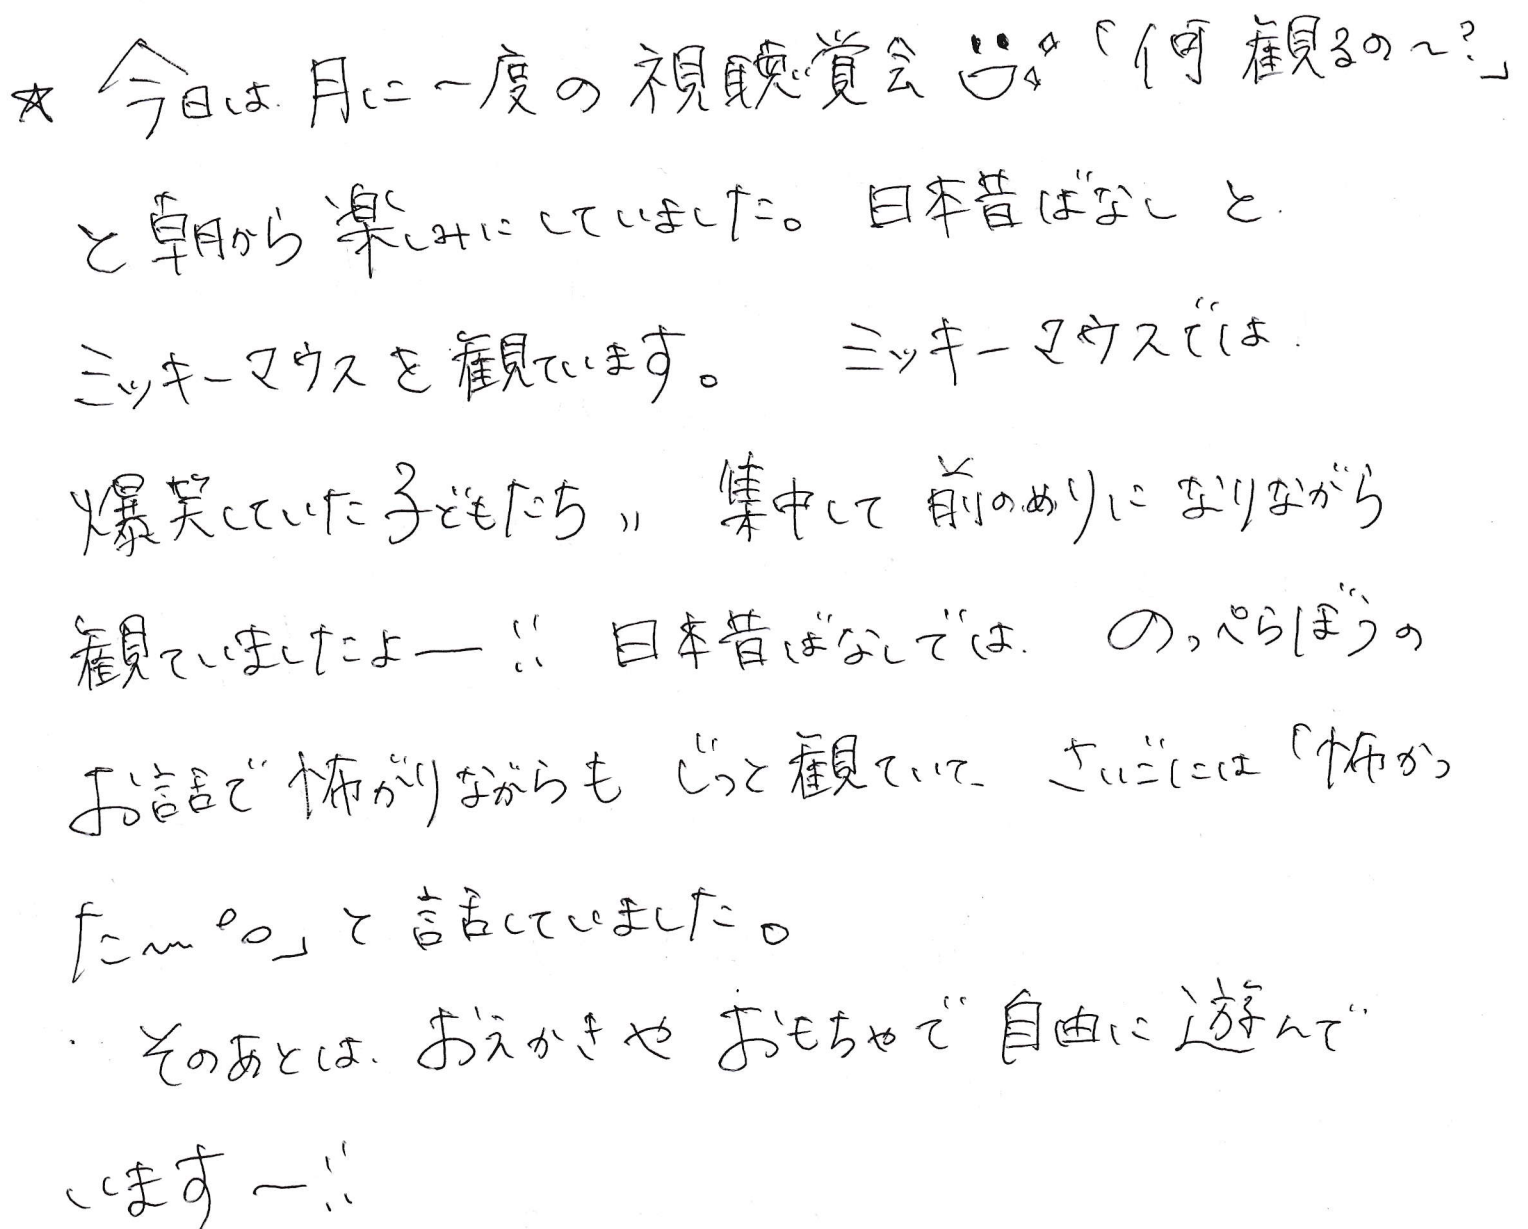 ☆ 今日は 月に一度の 視聴覚会 「何 観るの〜?」
と 朝から 楽しみにしていました。 日本昔ばなし と
ミッキーマウスを 観ています。 ミッキーマウスでは
爆笑していた子どもたち 集中して 前のめりに なりながら
観ていましたよー!! 日本昔ばなしでは のっぺらぼうの
お話で 怖がりながらも じっと観ていて さいごには 「怖かっ
た〜。」と 話していました。
そのあとは、おえかきや おもちゃで 自由に 遊んで
います〜!!